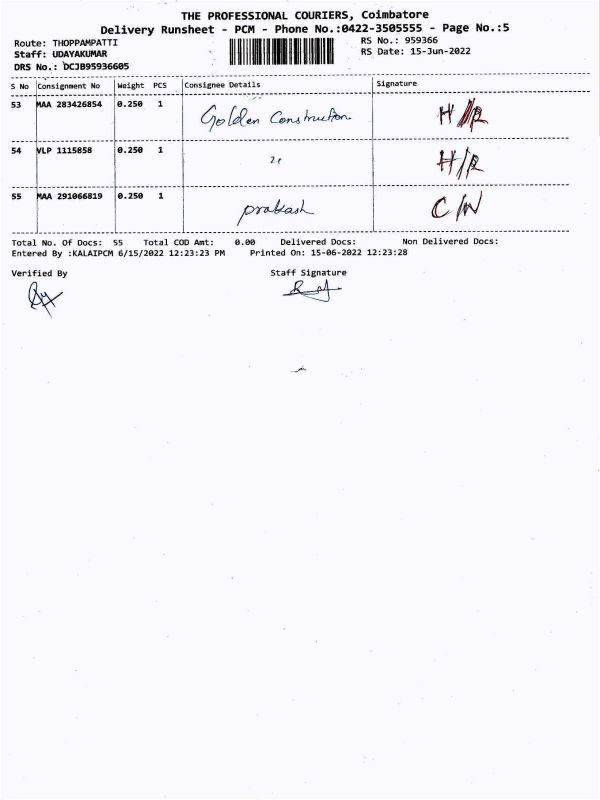 THE PROFESSIONAL COURIERS, Coimbatore
Delivery Runsheet - PCM - Phone No.:0422-3505555 - Page No.:5
Route: THOPPAMPATTI
Staff: UDAYAKUMAR
DRS No.: DCJB95936605
RS No.: 959366
RS Date: 15-Jun-2022
S No Consignment No Weight PCS Consignee Details Signature
53 MAA 283426854 0.250 1 Golden Construction H/R
54 VLP 1115858 0.250 1 H/R
55 MAA 291066819 0.250 1 prakash C/N
Total No. Of Docs: 55 Total COD Amt: 0.00 Delivered Docs: Non Delivered Docs:
Entered By :KALAIPCM 6/15/2022 12:23:23 PM Printed On: 15-06-2022 12:23:28
Verified By Staff Signature